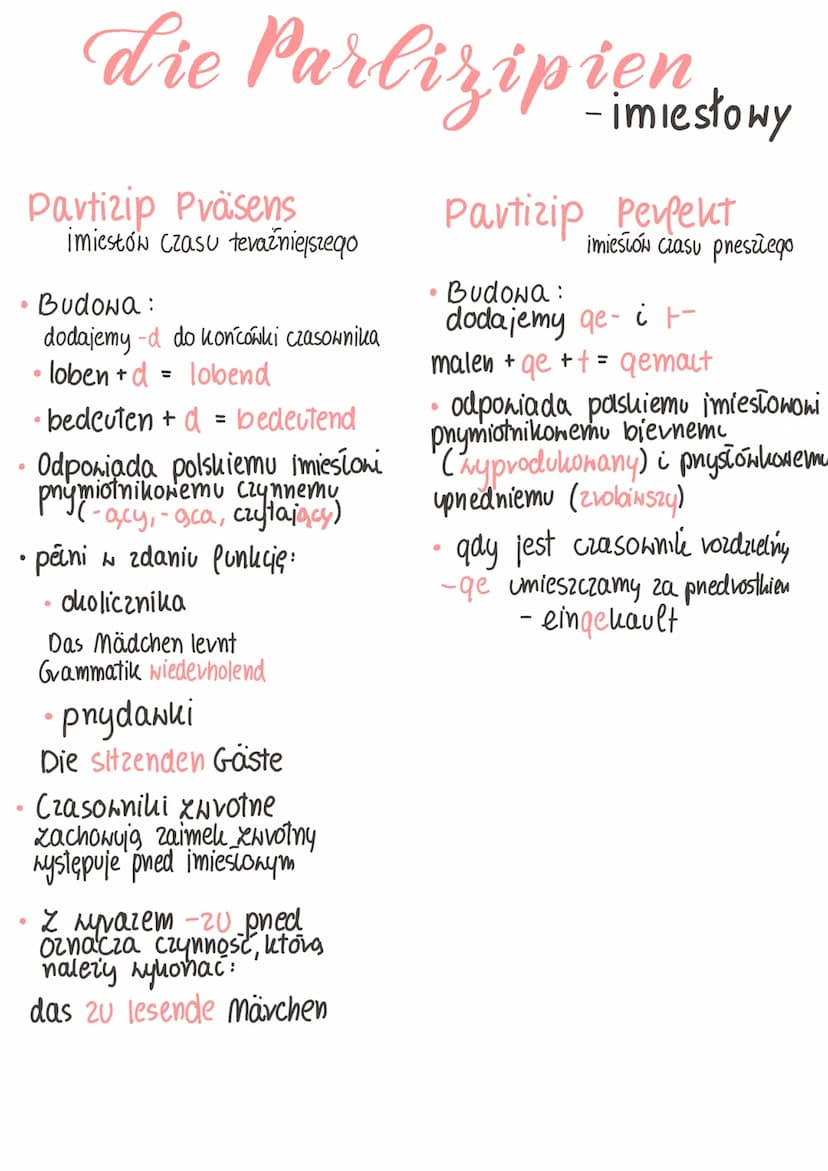 die Partizipien
- imiesłowy
Partizip Präsens
imiesłów czasu teraźniejszego
• Budowa :
dodajemy -d do końcówki czasownika
• loben + d = lobend
• bedeuten + d = bedeutend
• Odpowiada polskiemu imiesłowi
przymiotnikowemu czynnemu
(-ący, -ąca, czytający)
• pełni w zdaniu funkcję:
• okolicznika
Das Mädchen lernt
Grammatik wiederholend
• przydawki
Die sitzenden Gäste
• Czasowniki zwrotne
zachowują zaimek zwrotny
występuje przed imiesłowym
• Z wyrazem -zu przed
oznacza czynność, którą
należy wykonać:
das zu lesende Märchen
Partizip Perfekt
imiesłów czasu przeszłego
• Budowa :
dodajemy ge- i t-
malen + ge + t = gemalt
• odpowiada polskiemu imiesłowowi
przymiotnikowemu biernemu
(wyprodukowany) i przysłówkowemu
uprzedniemu (zrobiwszy)
• gdy jest czasownik rozdzielny
-ge umieszczamy za przedrostkiem
- eingekauft